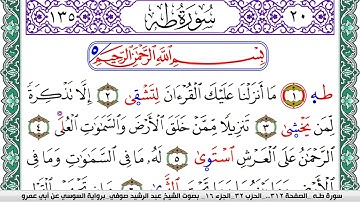 ٢٠ سُورَةُ طه ١٣٥
بِسْمِ اللَّهِ الرَّحْمَٰنِ الرَّحِيمِ
طه ١ مَا أَنزَلْنَا عَلَيْكَ الْقُرْءَانَ لِتَشْقَىٰ ٢ إِلَّا تَذْكِرَةً
لِّمَن يَخْشَىٰ ٣ تَنزِيلًا مِّمَّنْ خَلَقَ الْأَرْضَ وَالسَّمَٰوَٰتِ الْعُلَى ٤
الرَّحْمَٰنُ عَلَى الْعَرْشِ اسْتَوَىٰ ٥ لَهُ مَا فِي السَّمَٰوَٰتِ وَمَا فِي
سورة طه .. الصفحة ٣١٢ .. الحزب ٣٢ .. الجزء ١٦ .. بصوت الشيخ عبد الرشيد صوفي .. برواية السوسي عن أبي عمرو